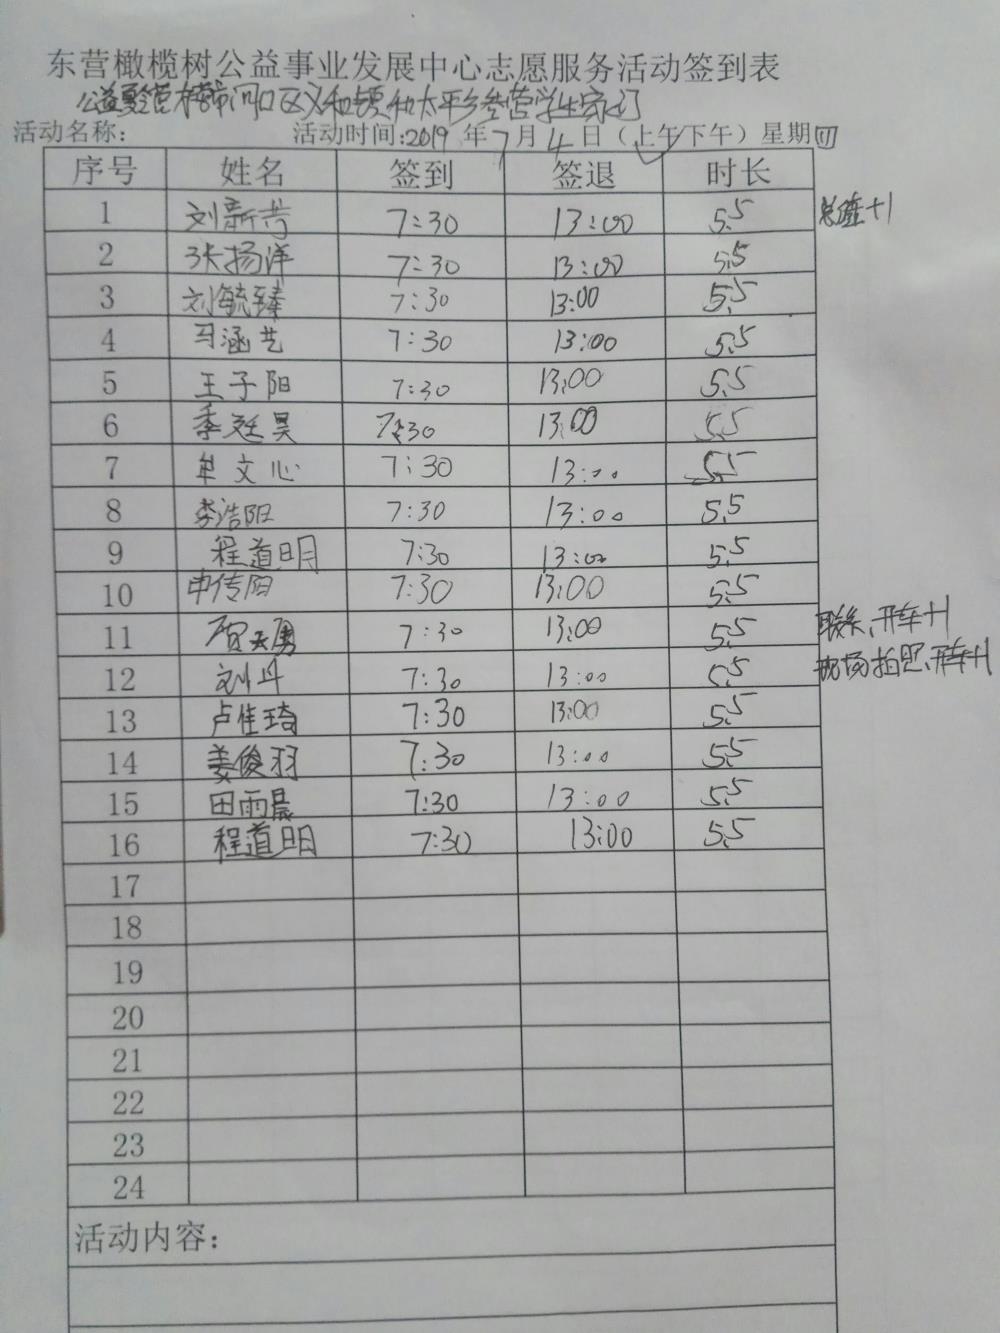 东营橄榄树公益事业发展中心志愿服务活动签到表
公益夏令营 河口区义和镇和太平乡 营学生家访
活动名称: 活动时间:2019年7月4日（上午/下午）星期四
序号 姓名 签到 签退 时长
1 刘新芳 7:30 13:00 5.5 +1
2 张扬洋 7:30 13:00 5.5
3 刘毓臻 7:30 13:00 5.5
4 马涵艺 7:30 13:00 5.5
5 王子阳 7:30 13:00 5.5
6 季廷昊 7:30 13:00 5.5
7 单文心 7:30 13:00 5.5
8 李浩阳 7:30 13:00 5.5
9 程道明 7:30 13:00 5.5
10 申传阳 7:30 13:00 5.5
11 贺天勇 7:30 13:00 5.5 联系、开车+1
12 刘丹 7:30 13:00 5.5 现场拍照、开车+1
13 卢佳琦 7:30 13:00 5.5
14 姜俊羽 7:30 13:00 5.5
15 田雨晨 7:30 13:00 5.5
16 程道明 7:30 13:00 5.5
17
18
19
20
21
22
23
24
活动内容：